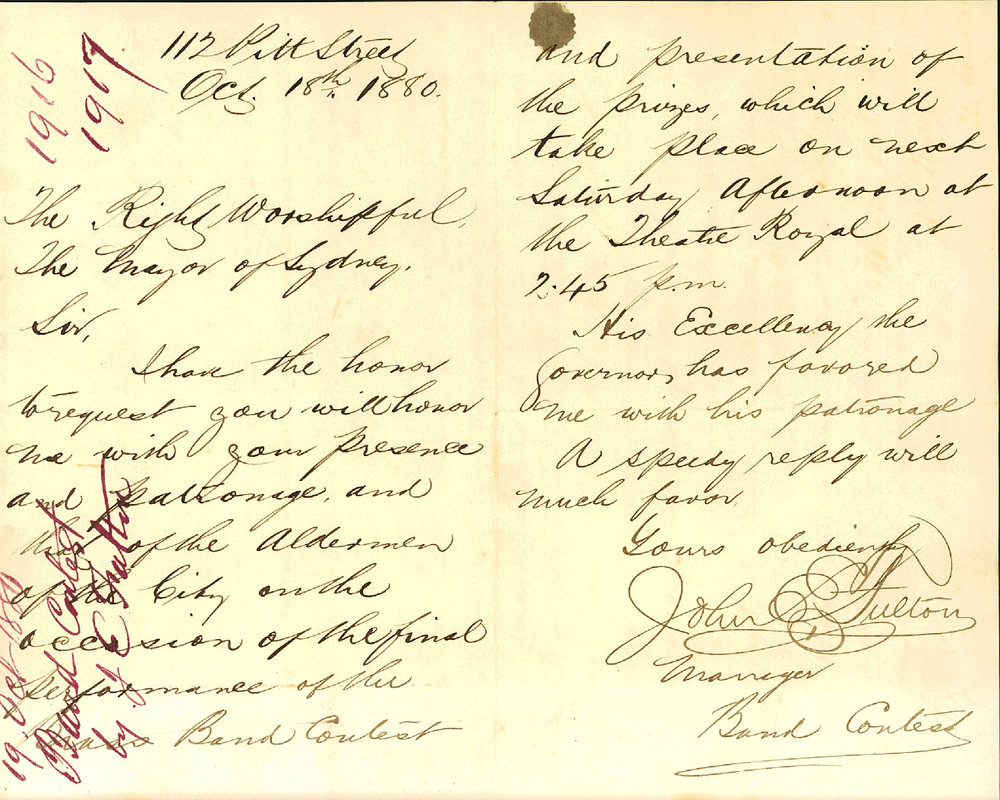 112 Pitt Street
Oct. 18th. 1880.
The Right Worshipful,
The Mayor of Sydney.
Sir,
I have the honor
to request you will honor
me with your presence
and patronage, and
that of the Aldermen
of the City on the
occasion of the final
performance of the
Brass Band Contest
and presentation of
the prizes, which will
take place on next
Saturday Afternoon at
the Theatre Royal at
2.45 p.m.
His Excellency the
Governor, has favored
me with his patronage
A speedy reply will
much favor.
Yours obediently
John E Fulton
Manager
Band Contest
1916
1917
19 Oct 1880
Band Contest
by J E Fulton